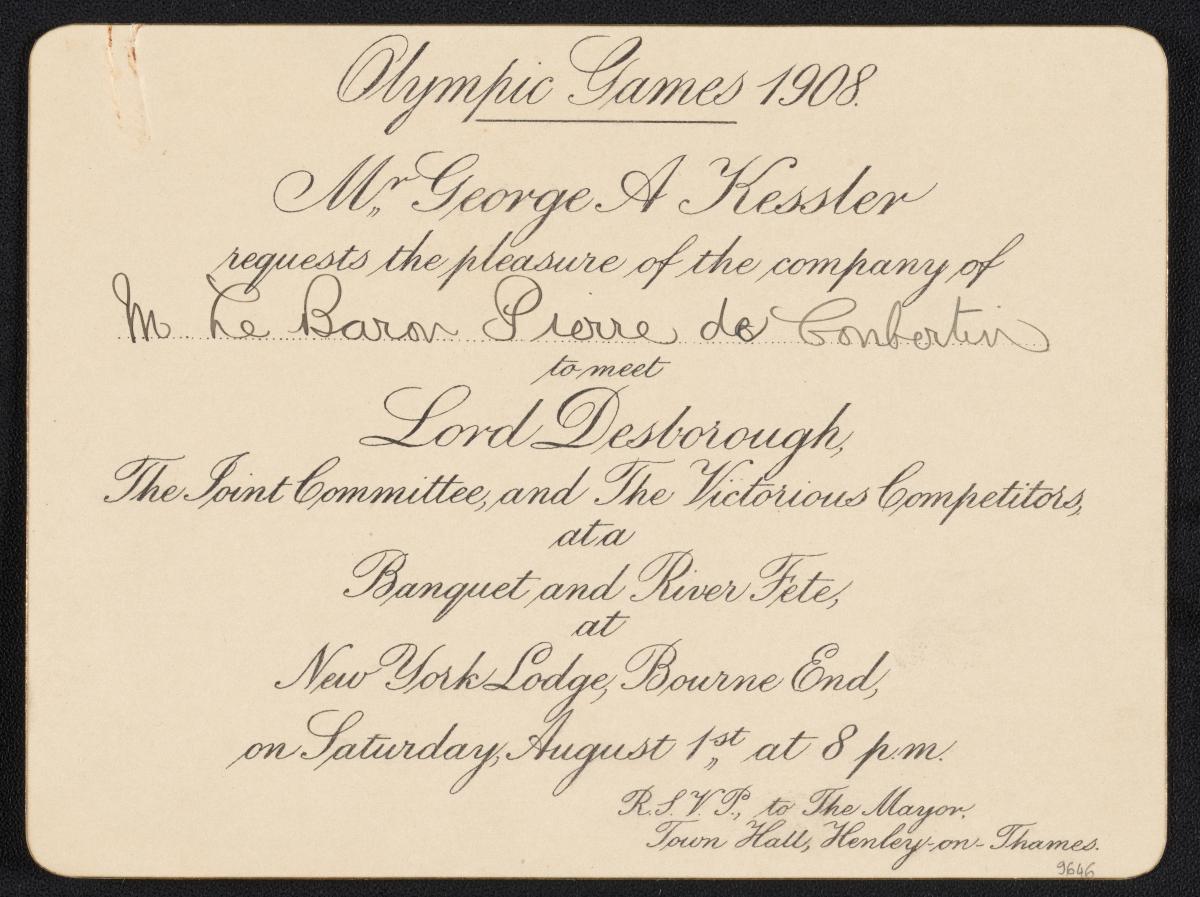 Olympic Games 1908.
Mr. George A Kessler
requests the pleasure of the company of
M Le Baron Pierre de Conbertin
to meet
Lord Desborough,
The Joint Committee, and The Victorious Competitors,
at a
Banquet and River Fete,
at
New York Lodge, Bourne End,
on Saturday, August 1st at 8 p.m.
R.S.V.P., to The Mayor,
Town Hall, Henley-on-Thames.
9646